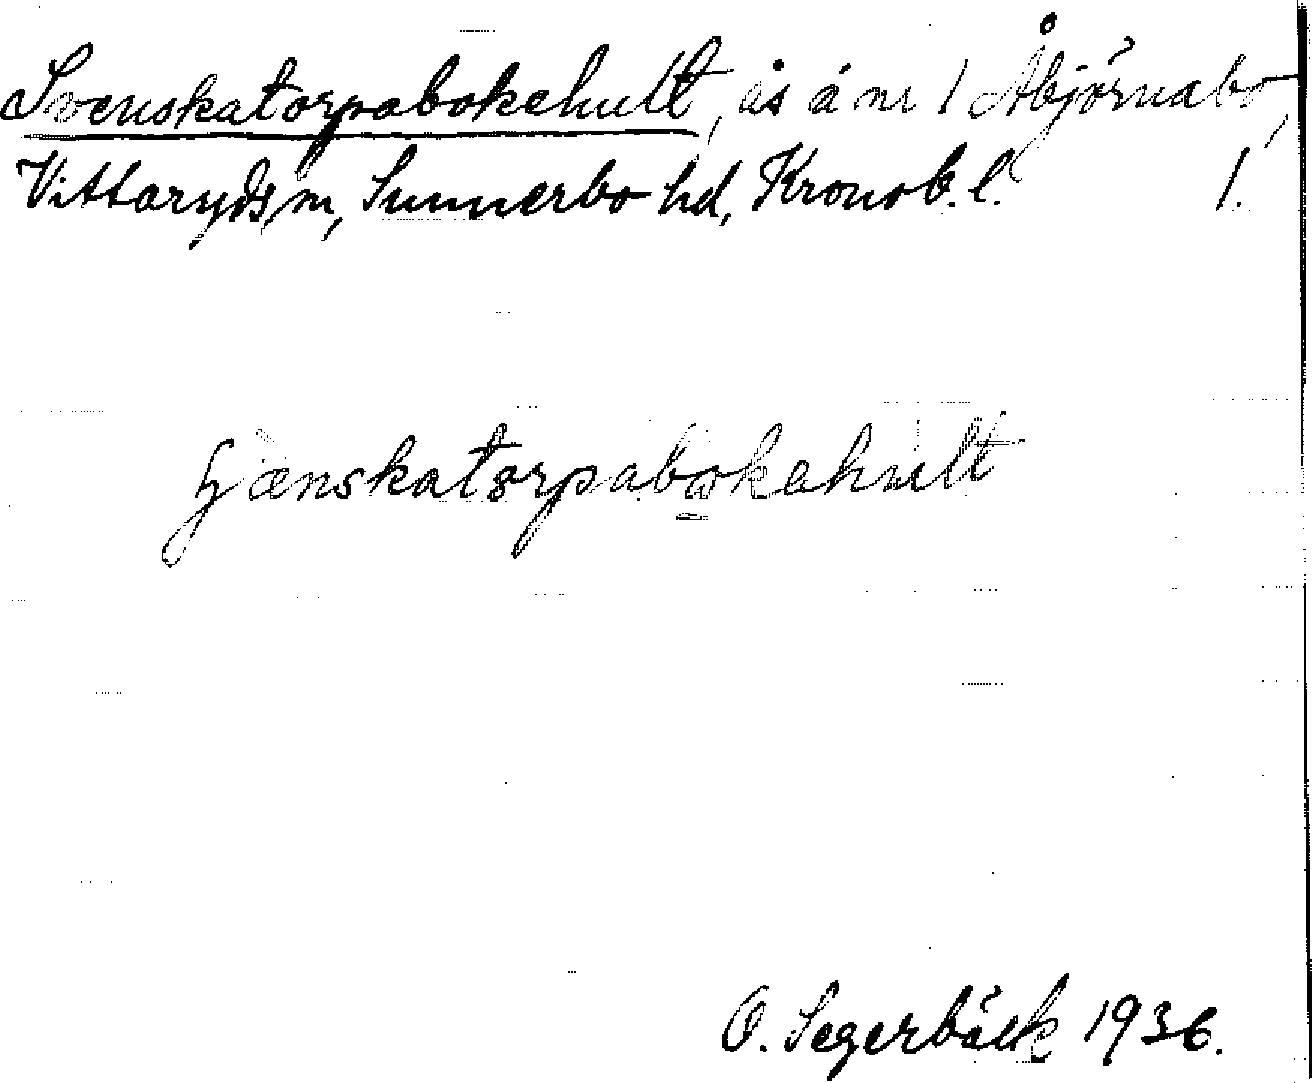 Svenskatorpabokehult, ås å nr 1 Åbjörnabo,
Vittaryds sn, Sunnerbo hd, Kronob. l. 1.
ɧænskatorpabokahult
O. Segerbäck 1936.